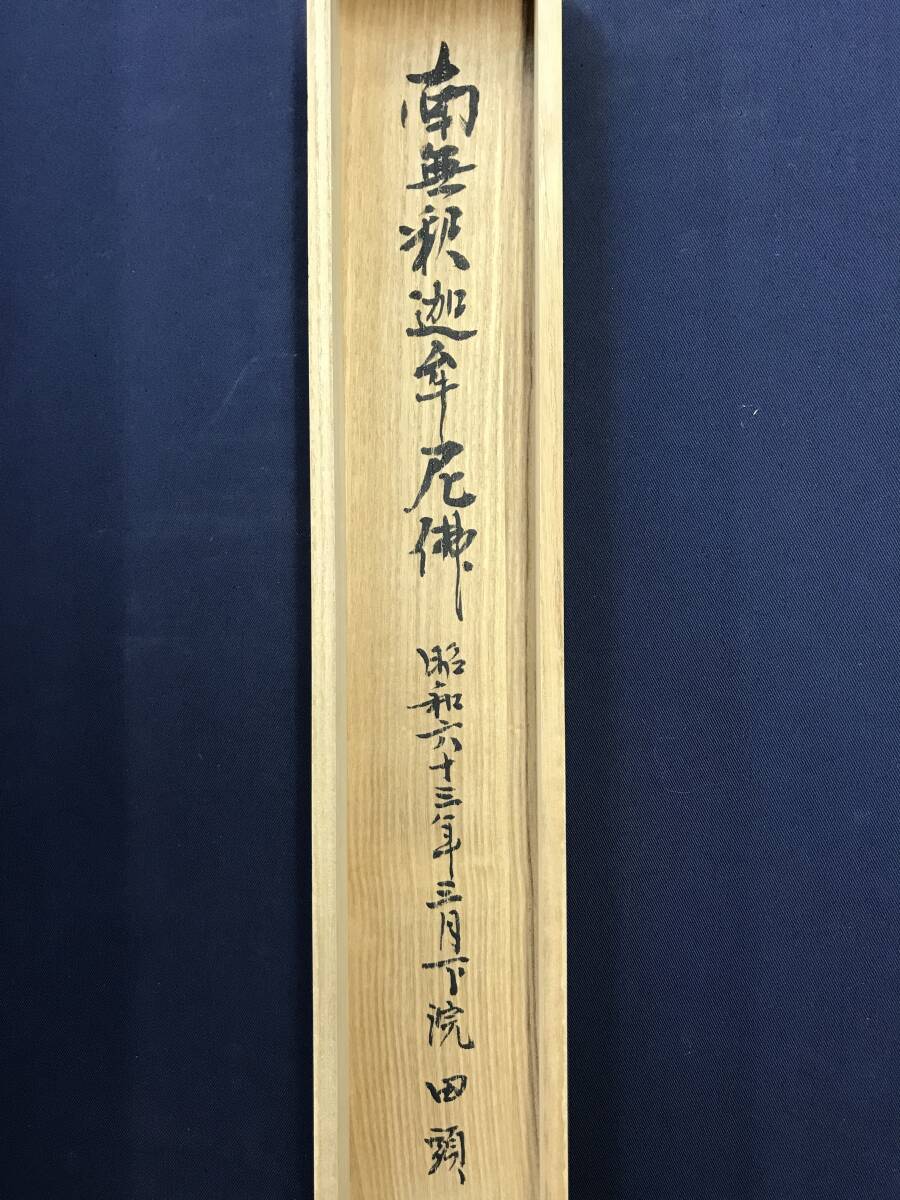 南無釈迦牟尼佛 昭和六十三年三月下浣 田頭